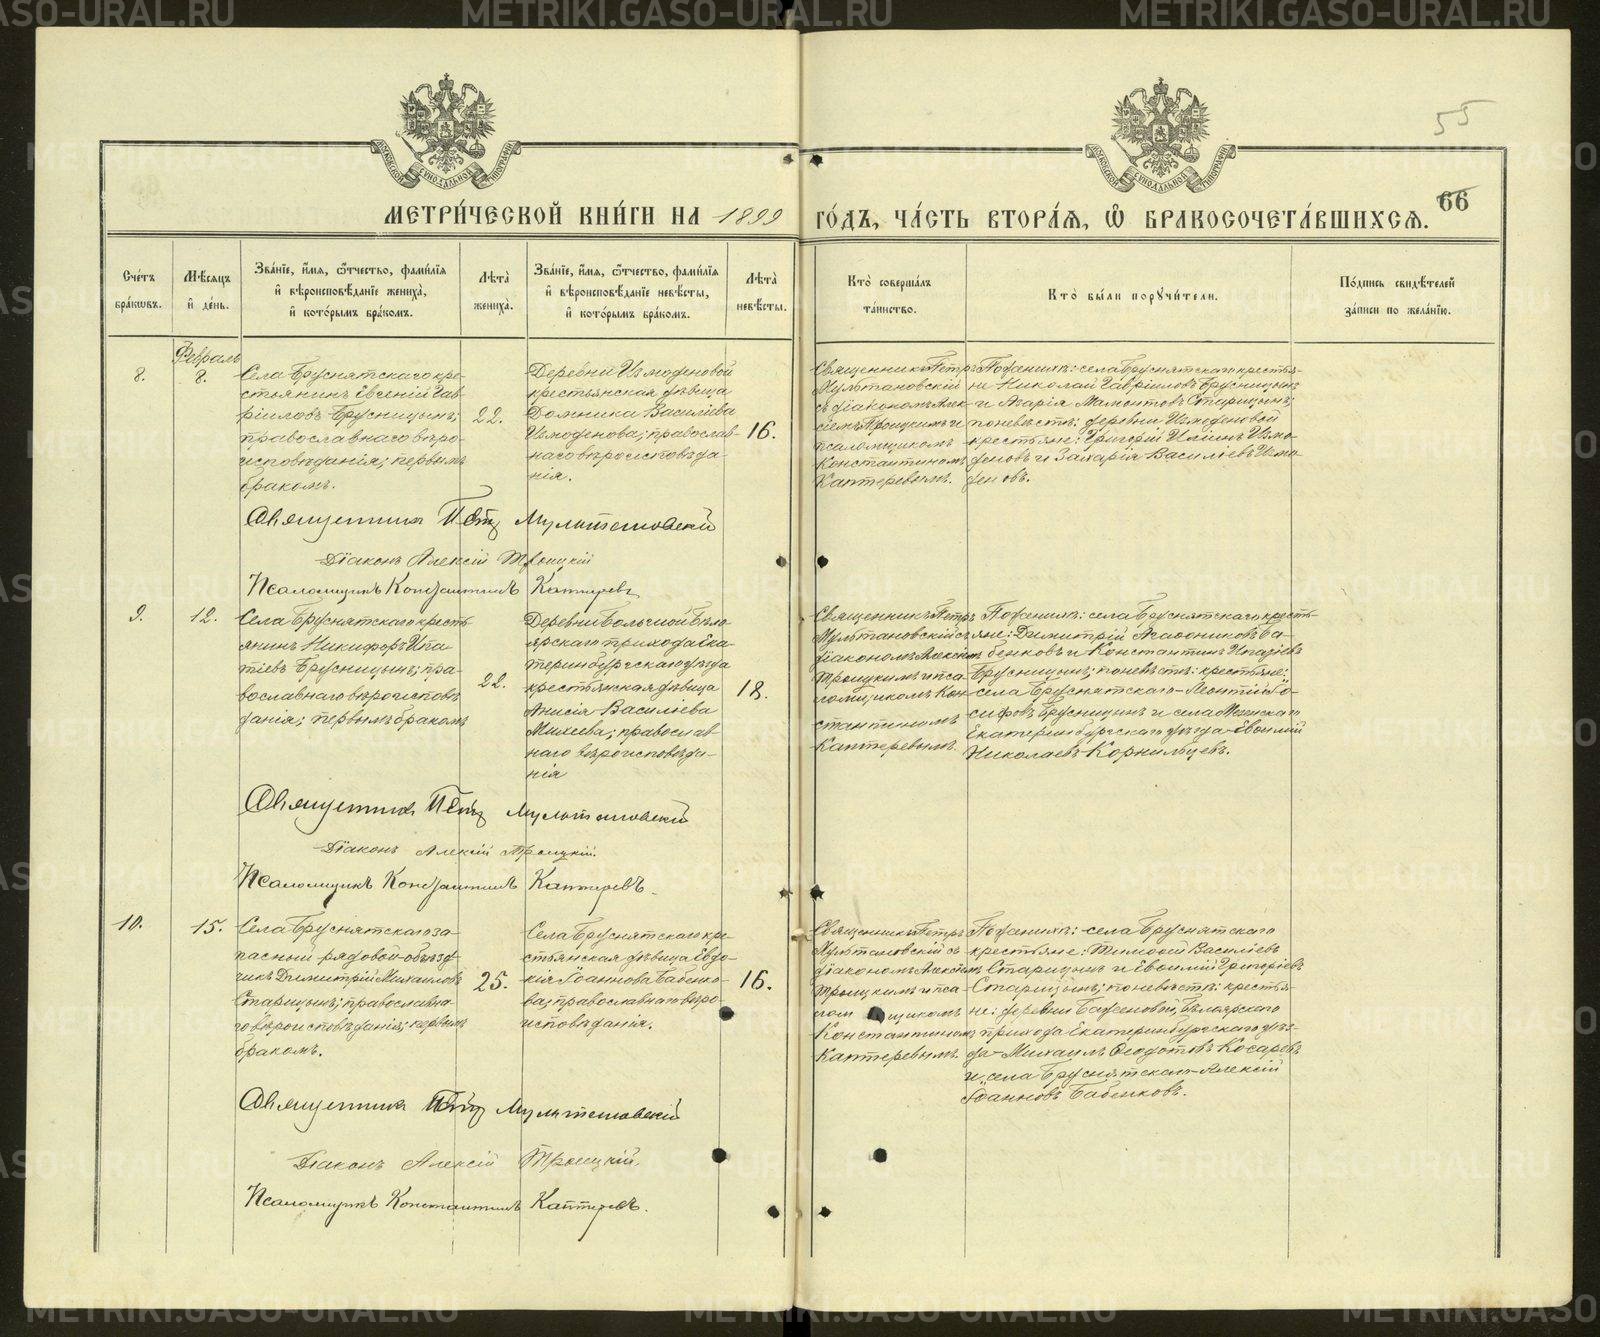 METRIKI.GASO-URAL.RU
55
66
МЕТРИ́ЧЕСКОЙ КНИ́ГИ НА 1899 ГО́ДЪ, ЧА́СТЬ ВТОРА́Я, Ѡ҆ БРАКОСОЧЕТА́ВШИХСЯ.
Сче́тъ бра́ковъ.
Мѣ́сяцъ и де́нь.
Зва́нїе, и҆́мя, ѻ҆́тчество, фами́лїя и҆ вѣроисповѣ́данїе жениха̀, и҆ кото́рымъ бра́комъ.
Лѣ́та жениха̀.
Зва́нїе, и҆́мя, ѻ҆́тчество, фами́лїя и҆ вѣроисповѣ́данїе невѣ́сты, и҆ кото́рымъ бра́комъ.
Лѣ́та невѣ́сты.
Кто̀ соверша́лъ та́инство.
Кто̀ бы́ли поручи́тели.
По́дпись свидѣ́телей за́писи по жела́нїю.
8.
Февраль
8.
Села Бруснятскаго кре-
стьянинъ Евгеній Гав-
ріиловъ Брусницынъ;
православнаго вѣро-
исповѣданія; первымъ
бракомъ.
22.
Деревни Измоденовой
крестьянская дѣвица
Домника Василіева
Измоденова; православ-
наго вѣроисповѣда-
нія.
16.
Священникъ Петръ
Мультановскій
съ діакономъ Алек-
сіемъ Троицкимъ и
псаломщикомъ
Константиномъ
Каптеревымъ.
По женихѣ: села Бруснятскаго крестья-
не Николай Гавріиловъ Брусницынъ
и Азарія Мамонтовъ Старицынъ;
по невѣстѣ: деревни Измоденовой
крестьяне: Григорій Илiинъ Измо-
деновъ и Захарія Василіевъ Измо-
деновъ.
Священникъ Петръ Мультановскій
Діаконъ Алексій Троицкій
Псаломщикъ Константинъ Каптеревъ
9.
12.
Села Бруснятскаго кресть-
янинъ Никифоръ Ипа-
тіевъ Брусницынъ; пра-
вославнаго вѣроисповѣ-
данія; первымъ бракомъ
22.
Деревни Большой Бѣло-
ярскаго прихода Ека-
теринбургскаго уѣзда
крестьянская дѣвица
Анисія Василіева
Михеева; православ-
наго вѣроисповѣда-
нія
18.
Священникъ Петръ
Мультановскій съ
діакономъ Алексіемъ
Троицкимъ и пса-
ломщикомъ Кон-
стантиномъ
Каптеревымъ.
По женихѣ: села Бруснятскаго кресть-
яне: Димитрій Агафониковъ Ба-
бенковъ и Константинъ Ипатіевъ
Брусницынъ; по невѣстѣ: крестьяне:
села Бруснятскаго Леонтій Іо-
сифовъ Брусницынъ и села
Екатеринбургскаго уѣзда Евѳимій
Николаевъ Корнильцевъ.
Священникъ Петръ Мультановскій
Діаконъ Алексій Троицкій.
Псаломщикъ Константинъ Каптеревъ.
10.
15.
Села Бруснятскаго за-
пасный рядовой-объѣзд-
чикъ Димитрій Михаиловъ
Старицынъ; православна-
го вѣроисповѣданія; первымъ
бракомъ.
25.
Села Бруснятскаго кре-
стьянская дѣвица Евдо-
кія Іоаннова Бабенко-
ва; православнаго вѣро-
исповѣданія.
16.
Священникъ Петръ
Мультановскій съ
діакономъ Алексіемъ
Троицкимъ и пса-
ломщикомъ
Константиномъ
Каптеревымъ.
По женихѣ: села Бруснятскаго
крестьяне: Тимоѳей Василіевъ
Старицынъ и Евѳимій Григоріевъ
Старицынъ; по невѣстѣ: крестья-
не: деревни Баженовой, Бѣлоярскаго
прихода Екатеринбургскаго уѣз-
да Михаилъ Ѳеодотовъ Косаревъ
и села Бруснятскаго Алексій
Іоанновъ Бабенковъ.
Священникъ Петръ Мультановскій
Діаконъ Алексій Троицкій.
Псаломщикъ Константинъ Каптеревъ.